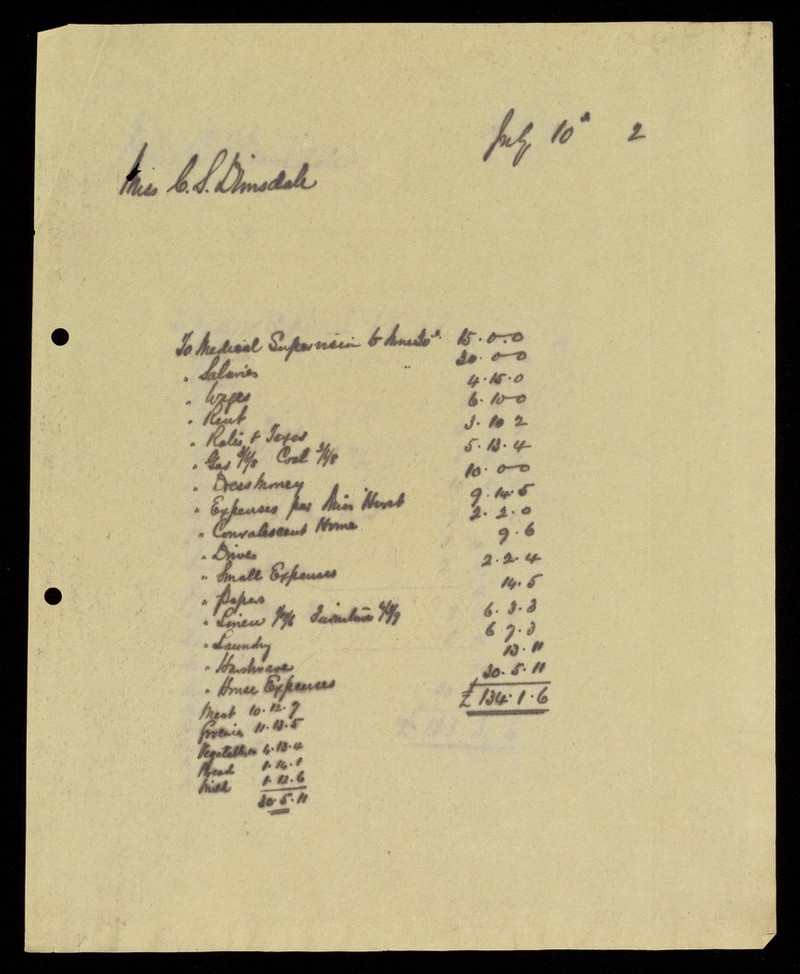 July 10th 2
Miss C. S. Dimsdale
To Medical Supervision to June 30th 15.0.0
" Salaries 30.0.0
" Wages 4.15.0
" Rent 6.10.0
" Rates & Taxes 3.10.2
" Gas Coal 5.13.4
" Dress Money 10.0.0
" Expenses per Miss Hurst 9.14.5
" Convalescent Home 2.2.0
" Drives 9.6
" Small Expenses 2.2.4
" Papers 14.5
" Linen Furniture 6.3.3
" Laundry 6.7.3
" Hardware 13.11
" House Expenses 30.5.11
£134.1.6
Meat 10.12.7
Groceries 11.13.5
Vegetables 4.13.4
Bread 1.14.1
Milk 1.12.6
30.5.11